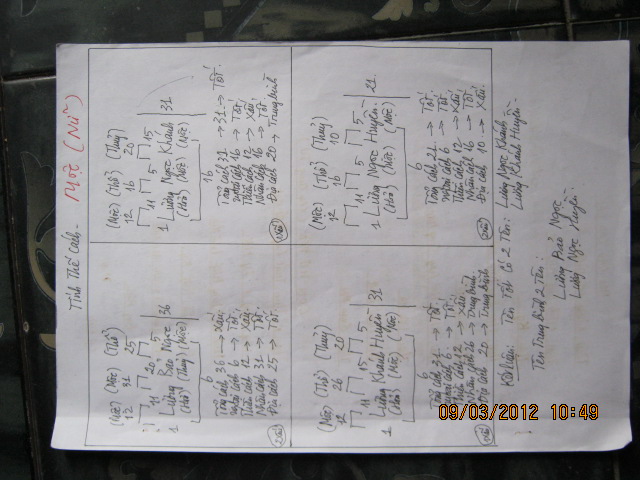 Tính Thế Cách - Mộc (Nữ)
(Mộc) (Mộc) (Thổ)
12 31 25
11 20 5
1 Lương Bảo Ngọc 36
(Hỏa) (Thuỷ) (Mộc)
6
Tổng cách 36 → Xấu.
Ngoại cách 6 → Tốt.
Thiên cách 12 → Xấu.
Nhân cách 31 → Tốt.
Địa cách 25 → Tốt.
(Mộc) (Thổ) (Thuỷ)
12 16 20
11 5 15
1 Lương Ngọc Khánh 31
(Hỏa) (Mộc) (Mộc)
16
Tổng cách 31 → Tốt.
Ngoại cách 16 → Tốt.
Thiên cách 12 → Xấu.
Nhân cách 16 → Tốt.
Địa cách 20 → Trung bình
(Mộc) (Thổ) (Thuỷ)
12 26 20
11 15 5
1 Lương Khánh Huyền 31
(Hỏa) (Mộc) (Mộc)
6
Tổng cách 31 → Tốt.
Ngoại cách 6 → Tốt.
Thiên cách 12 → Xấu
Nhân cách 26 → Trung bình.
Địa cách 20 → Trung bình
(Mộc) (Thổ) (Thuỷ)
12 16 10
11 5 5
1 Lương Ngọc Huyền 21
(Hỏa) (Mộc) (Mộc)
6
Tổng cách 21 → Tốt.
Ngoại cách 6 → Tốt.
Thiên cách 12 → Xấu.
Nhân cách 16 → Tốt.
Địa cách 10 → Xấu.
Kết luận: Tên Tốt Có 2 Tên: Lương Ngọc Khánh
Lương Khánh Huyền
Tên Trung Bình 2 Tên:
Lương Bảo Ngọc
Lương Ngọc Huyền.
09/03/2012 10:49